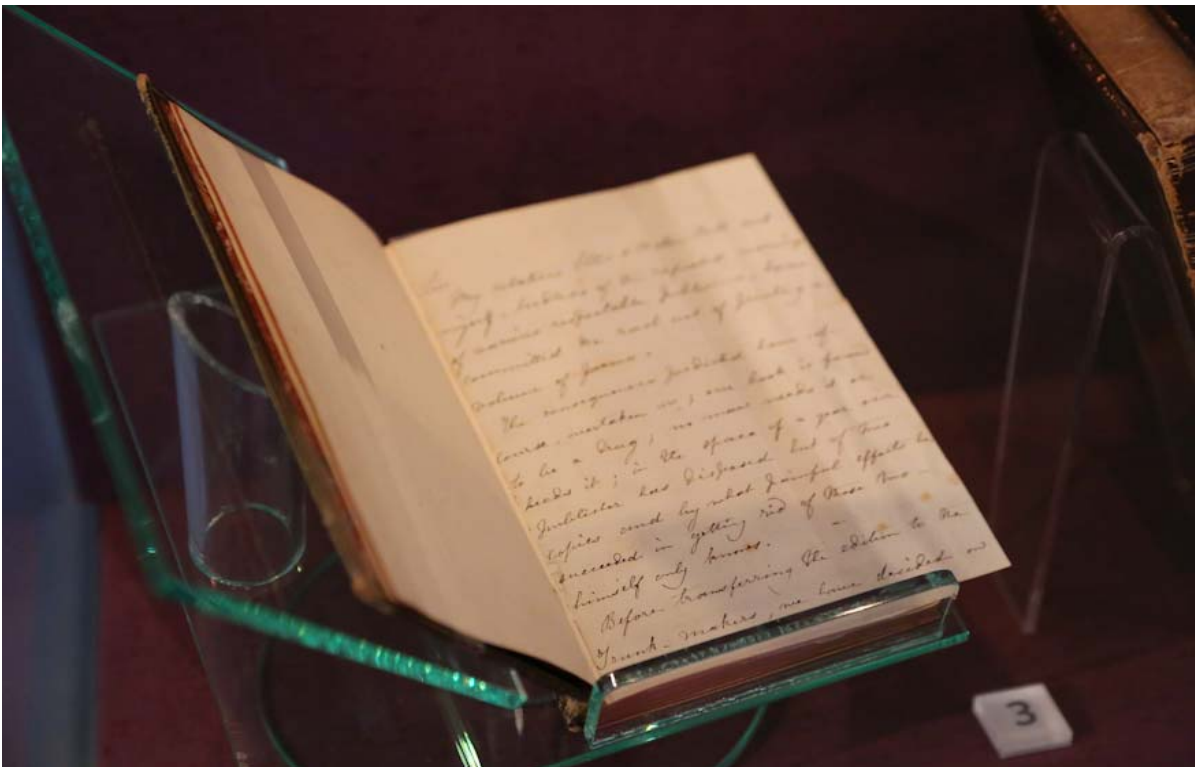 Sir
My relatives Ellis & Acton Bell and
myself, heedless of the repeated warnings
of various respectable publishers, have
committed the rash act of printing a
volume of poems.
The consequences predicted have, of
course, overtaken us; our book is found
to be a drug; no man needs it or
heeds it; in the space of a year our
publisher has disposed but of two
copies and by what painful efforts he
succeeded in getting rid of those two –
himself only knows.
Before transferring the edition to the
Trunk-makers, we have decided on
3